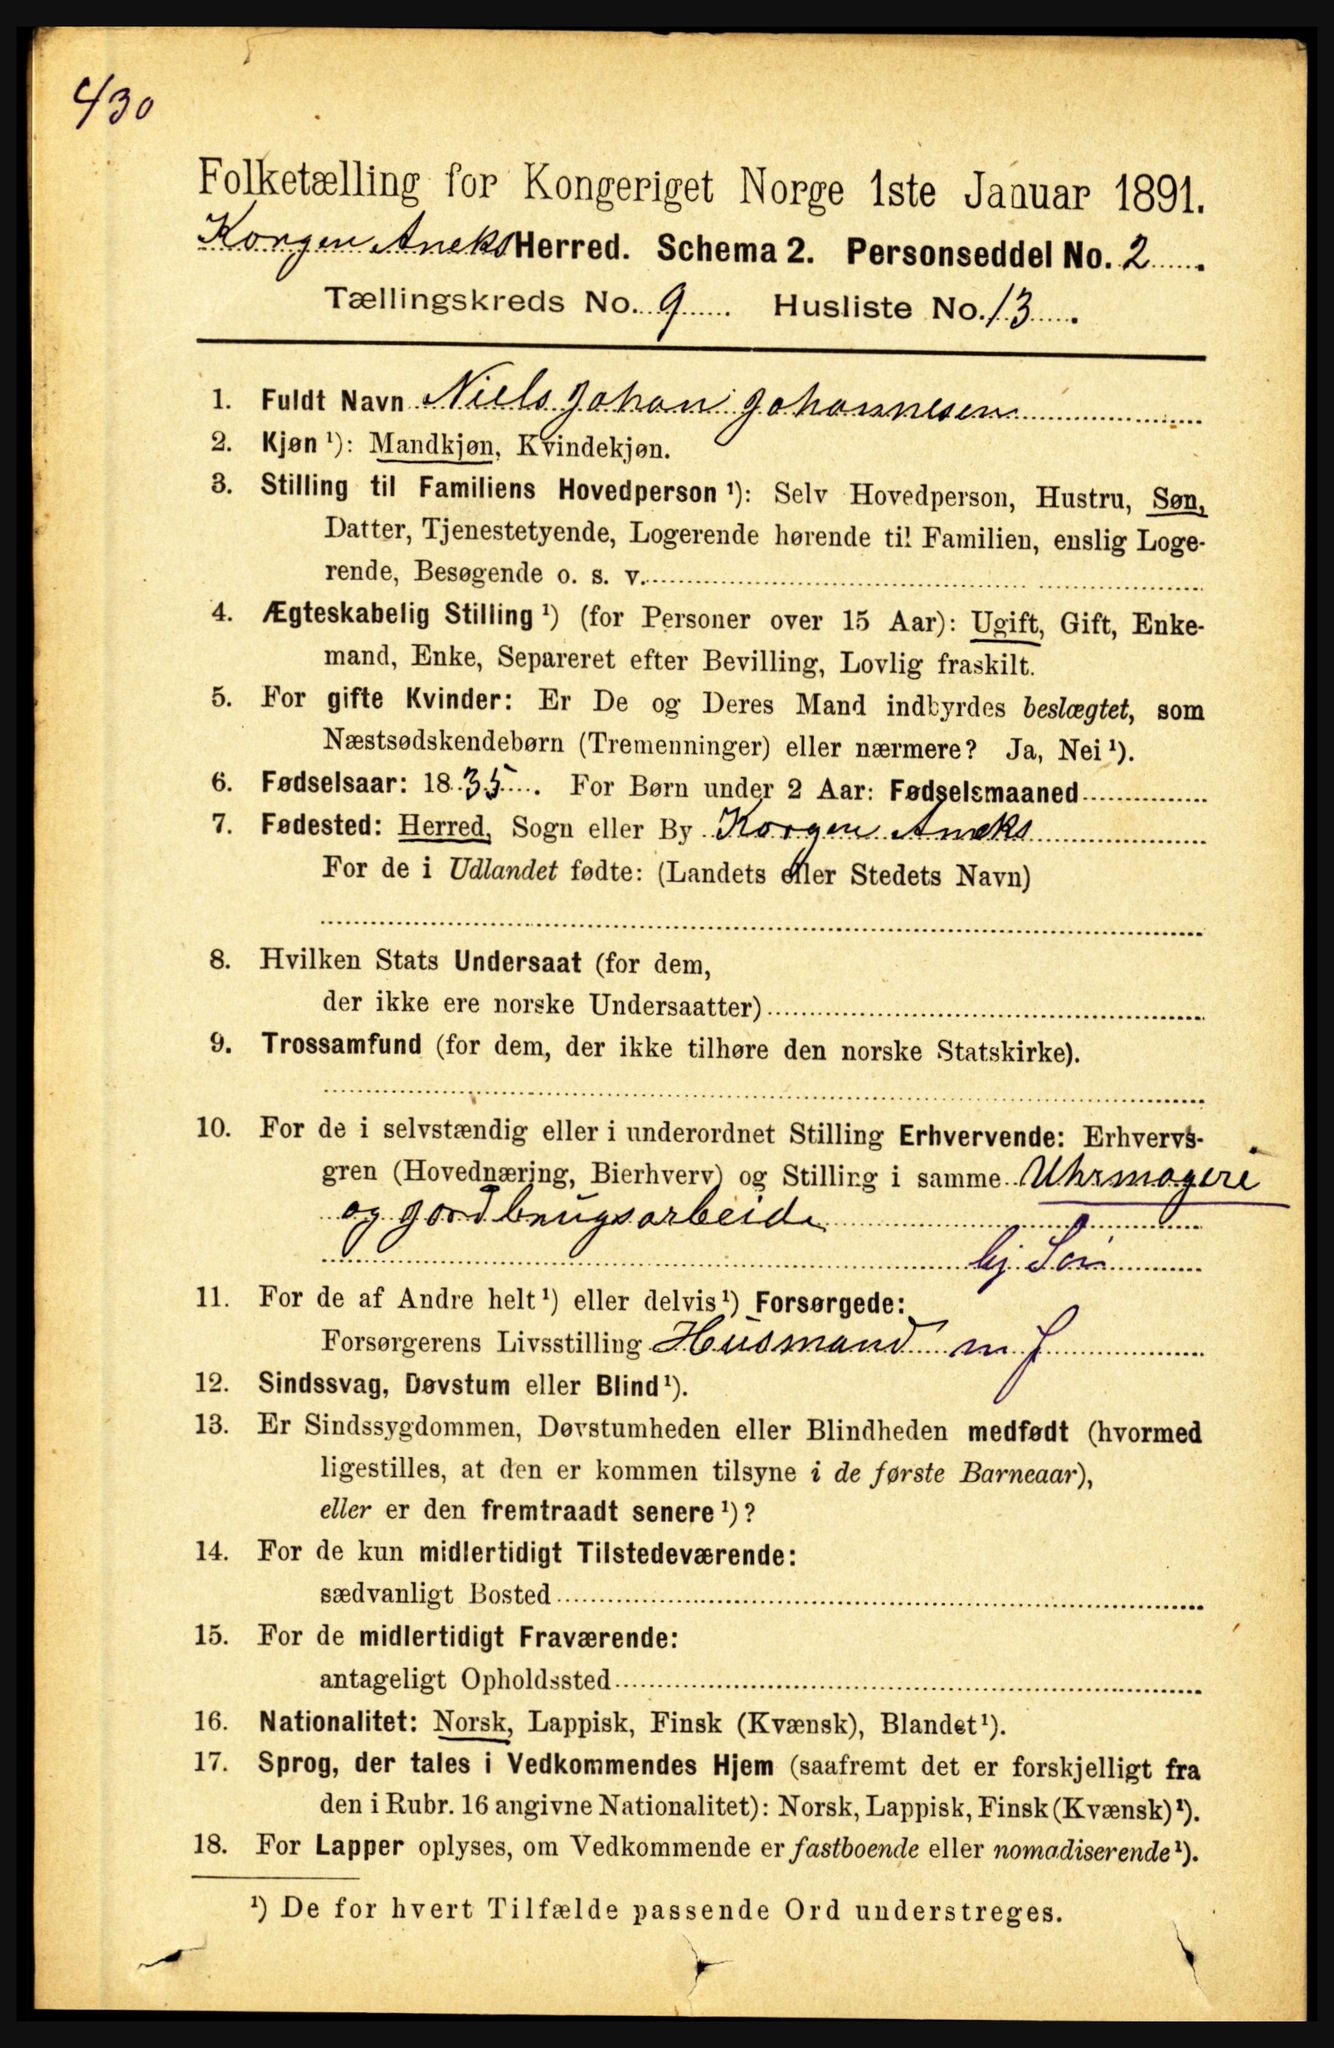 430
Folketælling for Kongeriget Norge 1ste Januar 1891.
Korgen Aneks Herred. Schema 2. Personseddel No. 2
Tællingskreds No. 9 Husliste No. 13.
1. Fuldt Navn Niels Johan Johannesen
2. Kjøn ¹): Mandkjøn, Kvindekjøn.
3. Stilling til Familiens Hovedperson ¹): Selv Hovedperson, Hustru, Søn,
Datter, Tjenestetyende, Logerende hørende til Familien, enslig Loge-
rende, Besøgende o. s. v.
4. Ægteskabelig Stilling ¹) (for Personer over 15 Aar): Ugift, Gift, Enke-
mand, Enke, Separeret efter Bevilling, Lovlig fraskilt.
5. For gifte Kvinder: Er De og Deres Mand indbyrdes beslægtet, som
Næstsødskendebørn (Tremenninger) eller nærmere? Ja, Nei ¹).
6. Fødselsaar: 1835. For Børn under 2 Aar: Fødselsmaaned
7. Fødested: Herred, Sogn eller By Korgen Aneks
For de i Udlandet fødte: (Landets eller Stedets Navn)
8. Hvilken Stats Undersaat (for dem,
der ikke ere norske Undersaatter)
9. Trossamfund (for dem, der ikke tilhøre den norske Statskirke).
10. For de i selvstændig eller i underordnet Stilling Erhvervende: Erhvervs-
gren (Hovednæring, Bierhverv) og Stilling i samme Uhrmageri
og jordbrugsarbeide
hj. Søn
11. For de af Andre helt ¹) eller delvis ¹) Forsørgede:
Forsørgerens Livsstilling Husmand m j
12. Sindssvag, Døvstum eller Blind ¹).
13. Er Sindssygdommen, Døvstumheden eller Blindheden medfødt (hvormed
ligestilles, at den er kommen tilsyne i de første Barneaar),
eller er den fremtraadt senere ¹)?
14. For de kun midlertidigt Tilstedeværende:
sædvanligt Bosted
15. For de midlertidigt Fraværende:
antageligt Opholdssted
16. Nationalitet: Norsk, Lappisk, Finsk (Kvænsk), Blandet ¹).
17. Sprog, der tales i Vedkommendes Hjem (saafremt det er forskjelligt fra
den i Rubr. 16 angivne Nationalitet): Norsk, Lappisk, Finsk (Kvænsk) ¹).
18. For Lapper oplyses, om Vedkommende er fastboende eller nomadiserende ¹).
¹) De for hvert Tilfælde passende Ord understreges.